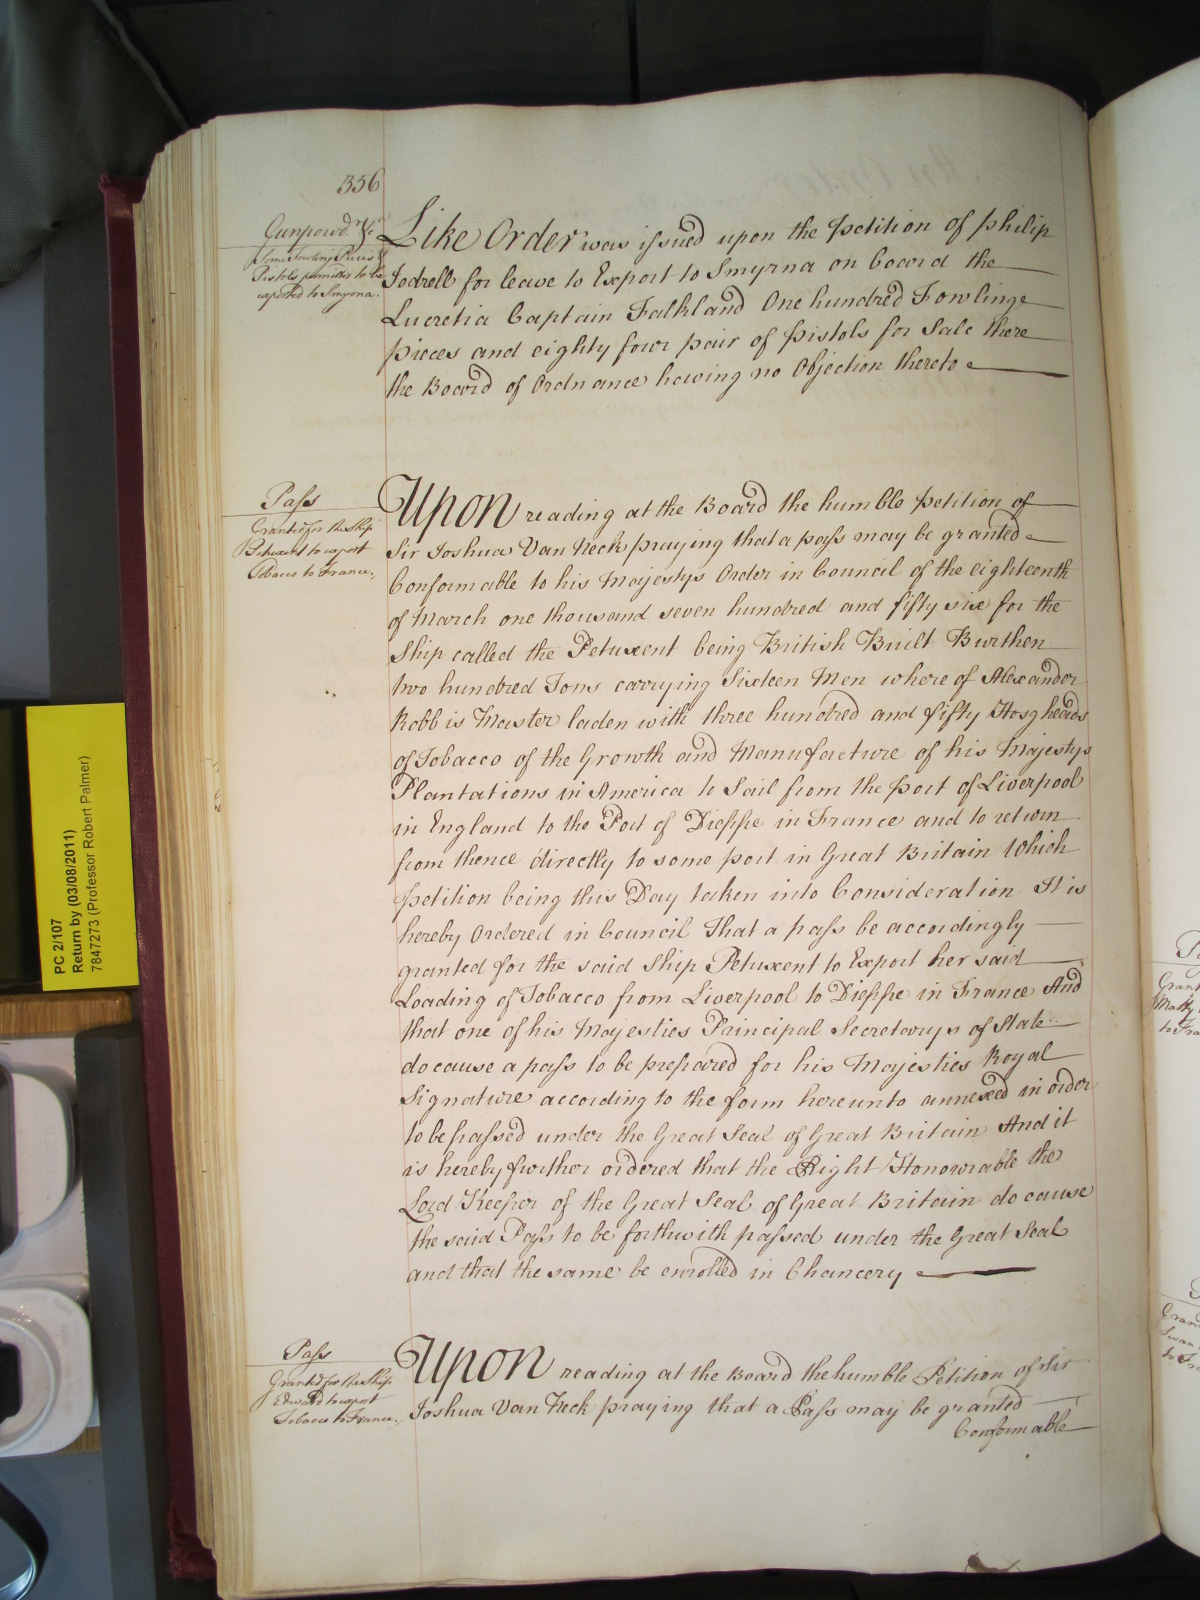 356
Gunpowdr &c
Some Fowling Pieces &
Pistols permitted to be
exported to Smyrna.
Like Order was issued upon the petition of philip
Jodrell for leave to Export to Smyrna on board the
Lucretia Captain Falkland One hundred Fowling
pieces and eighty four pair of pistols for Sale there
the Board of Ordnance having no Objection thereto
Pass
Granted for the Ship
Petuxent to export
Tobacco to France.
Upon reading at the Board the humble petition of
Sir Joshua Van Neck praying that a pass may be granted
Conformable to his Majestys Order in Council of the eighteenth
of March one thousand seven hundred and fifty six for the
Ship called the Petuxent being British Built Burthen
two hundred Tons carrying Sixteen Men where of Alexander
Robb is Master laden with three hundred and fifty Hosgheads
of Tobacco of the Growth and Manufacture of his Majestys
Plantations in America to Sail from the port of Liverpool
in England to the Port of Dieppe in France and to return
from thence directly to some port in Great Britain Which
petition being this Day taken into Consideration It is
hereby Ordered in Council That a pass be accordingly
granted for the said Ship Petuxent to Export her said
Loading of Tobacco from Liverpool to Dieppe in France And
that one of his Majesties Principal Secretarys of State
do cause a pass to be prepared for his Majesties Royal
Signature according to the form hereunto annexed in order
to be passed under the Great Seal of Great Britain And it
is hereby further ordered that the Right Honourable the
Lord Keeper of the Great Seal of Great Britain do cause
the said Pass to be forthwith passed under the Great Seal
and that the same be enrolled in Chancery
Pass
Granted for the Ship
Edward to export
Tobacco to France.
Upon reading at the Board the humble Petition of Sir
Joshua Van Neck praying that a Pass may be granted
Conformable
PC 2/107
Return by (03/08/2011)
7847273 (Professor Robert Palmer)